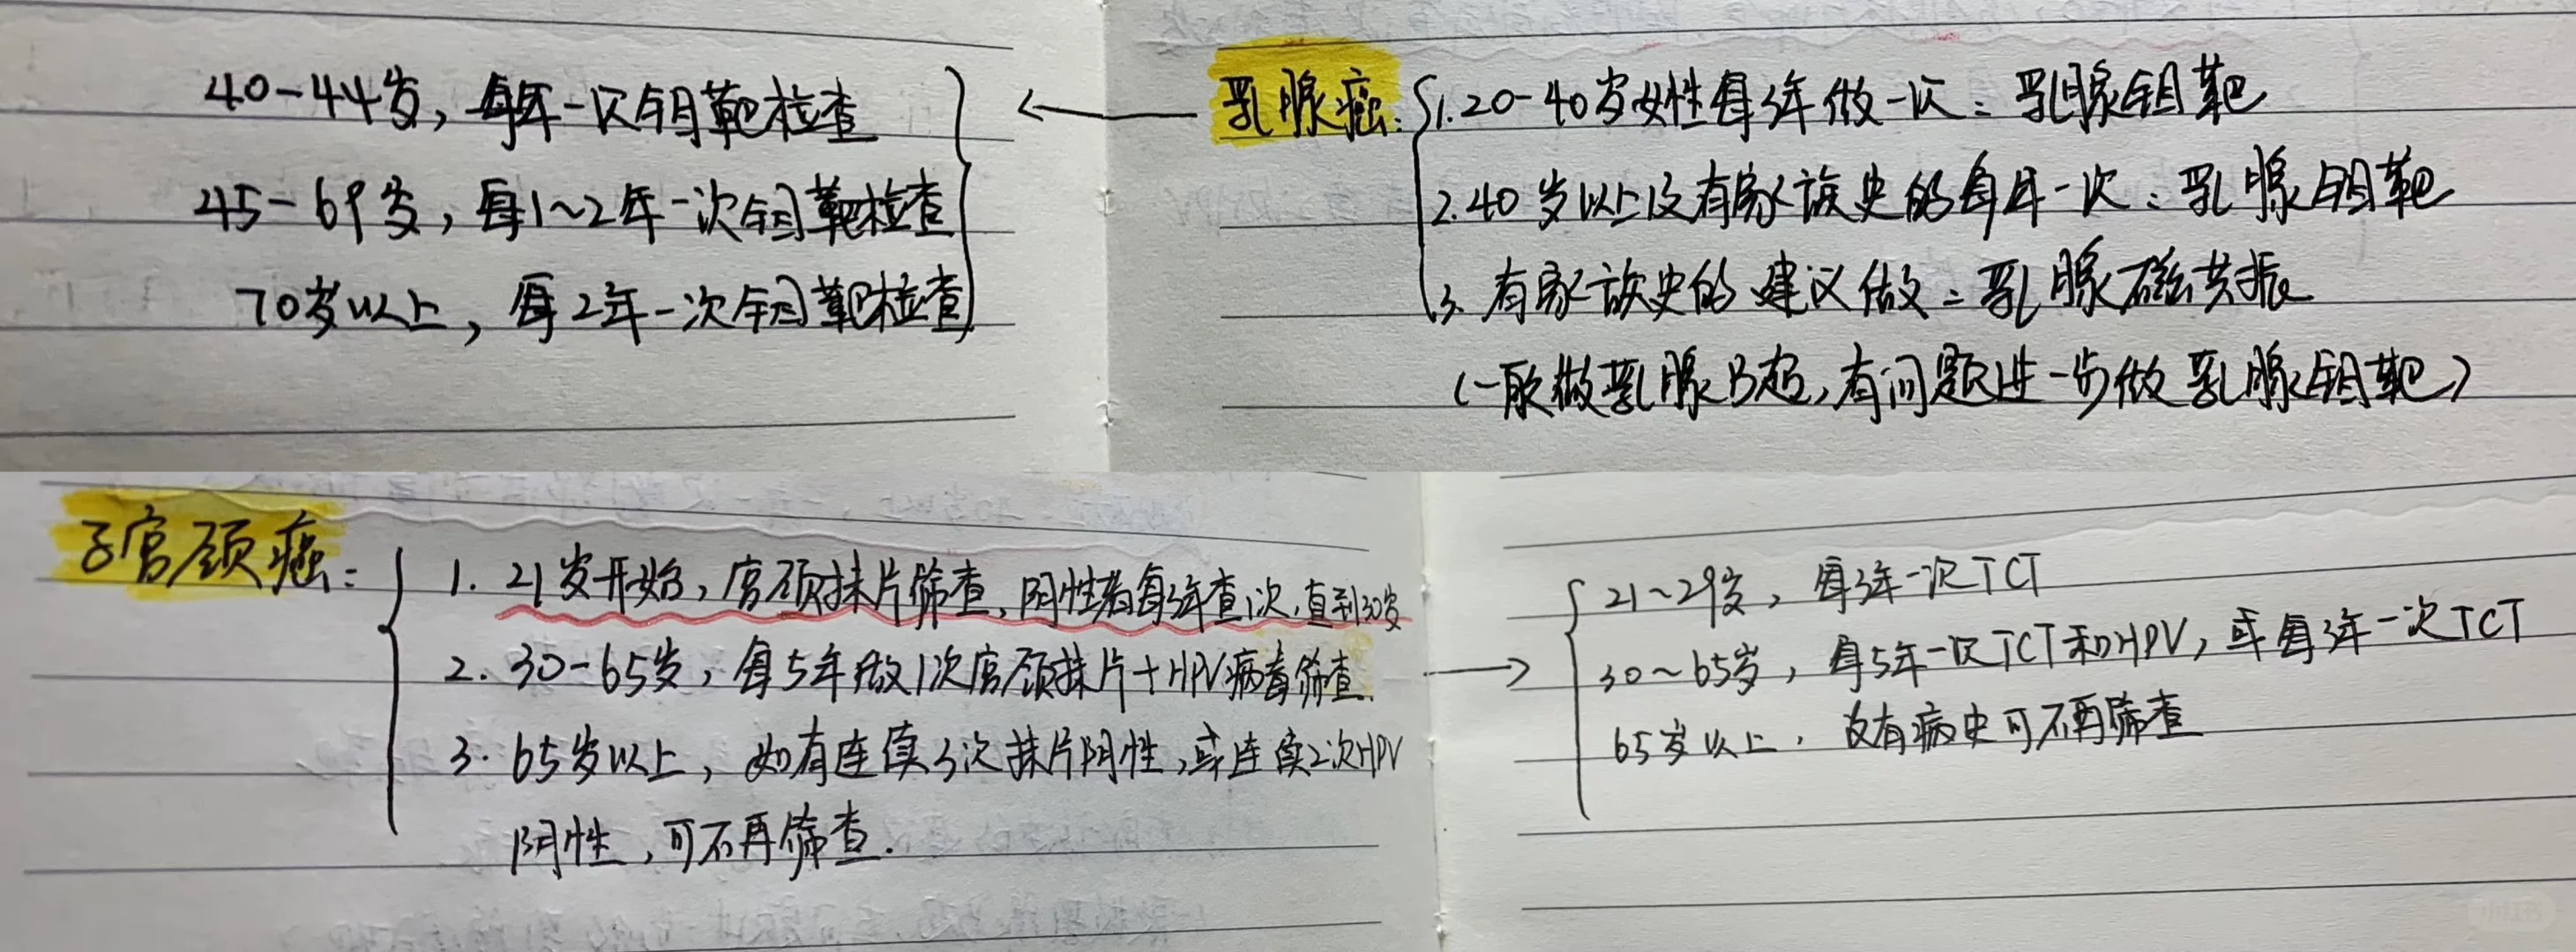 乳腺癌:
1. 20-40岁女性每3年做一次:乳腺钼靶
2. 40岁以上及有家族史的每年一次:乳腺钼靶
3. 有家族史的建议做:乳腺磁共振
(一般做乳腺B超,有问题进一步做乳腺钼靶)
←
40-44岁,每年一次钼靶检查
45-69岁,每1~2年一次钼靶检查
70岁以上,每2年一次钼靶检查
子宫颈癌:
1. 21岁开始,宫颈抹片筛查,阴性者每3年查1次,直到30岁
2. 30-65岁,每5年做1次宫颈抹片+HPV病毒筛查.
3. 65岁以上,如有连续3次抹片阴性,或连续2次HPV
阴性,可不再筛查.
→
21~29岁,每3年一次TCT
30~65岁,每5年一次TCT和HPV,或每3年一次TCT
65岁以上,没有病史可不再筛查